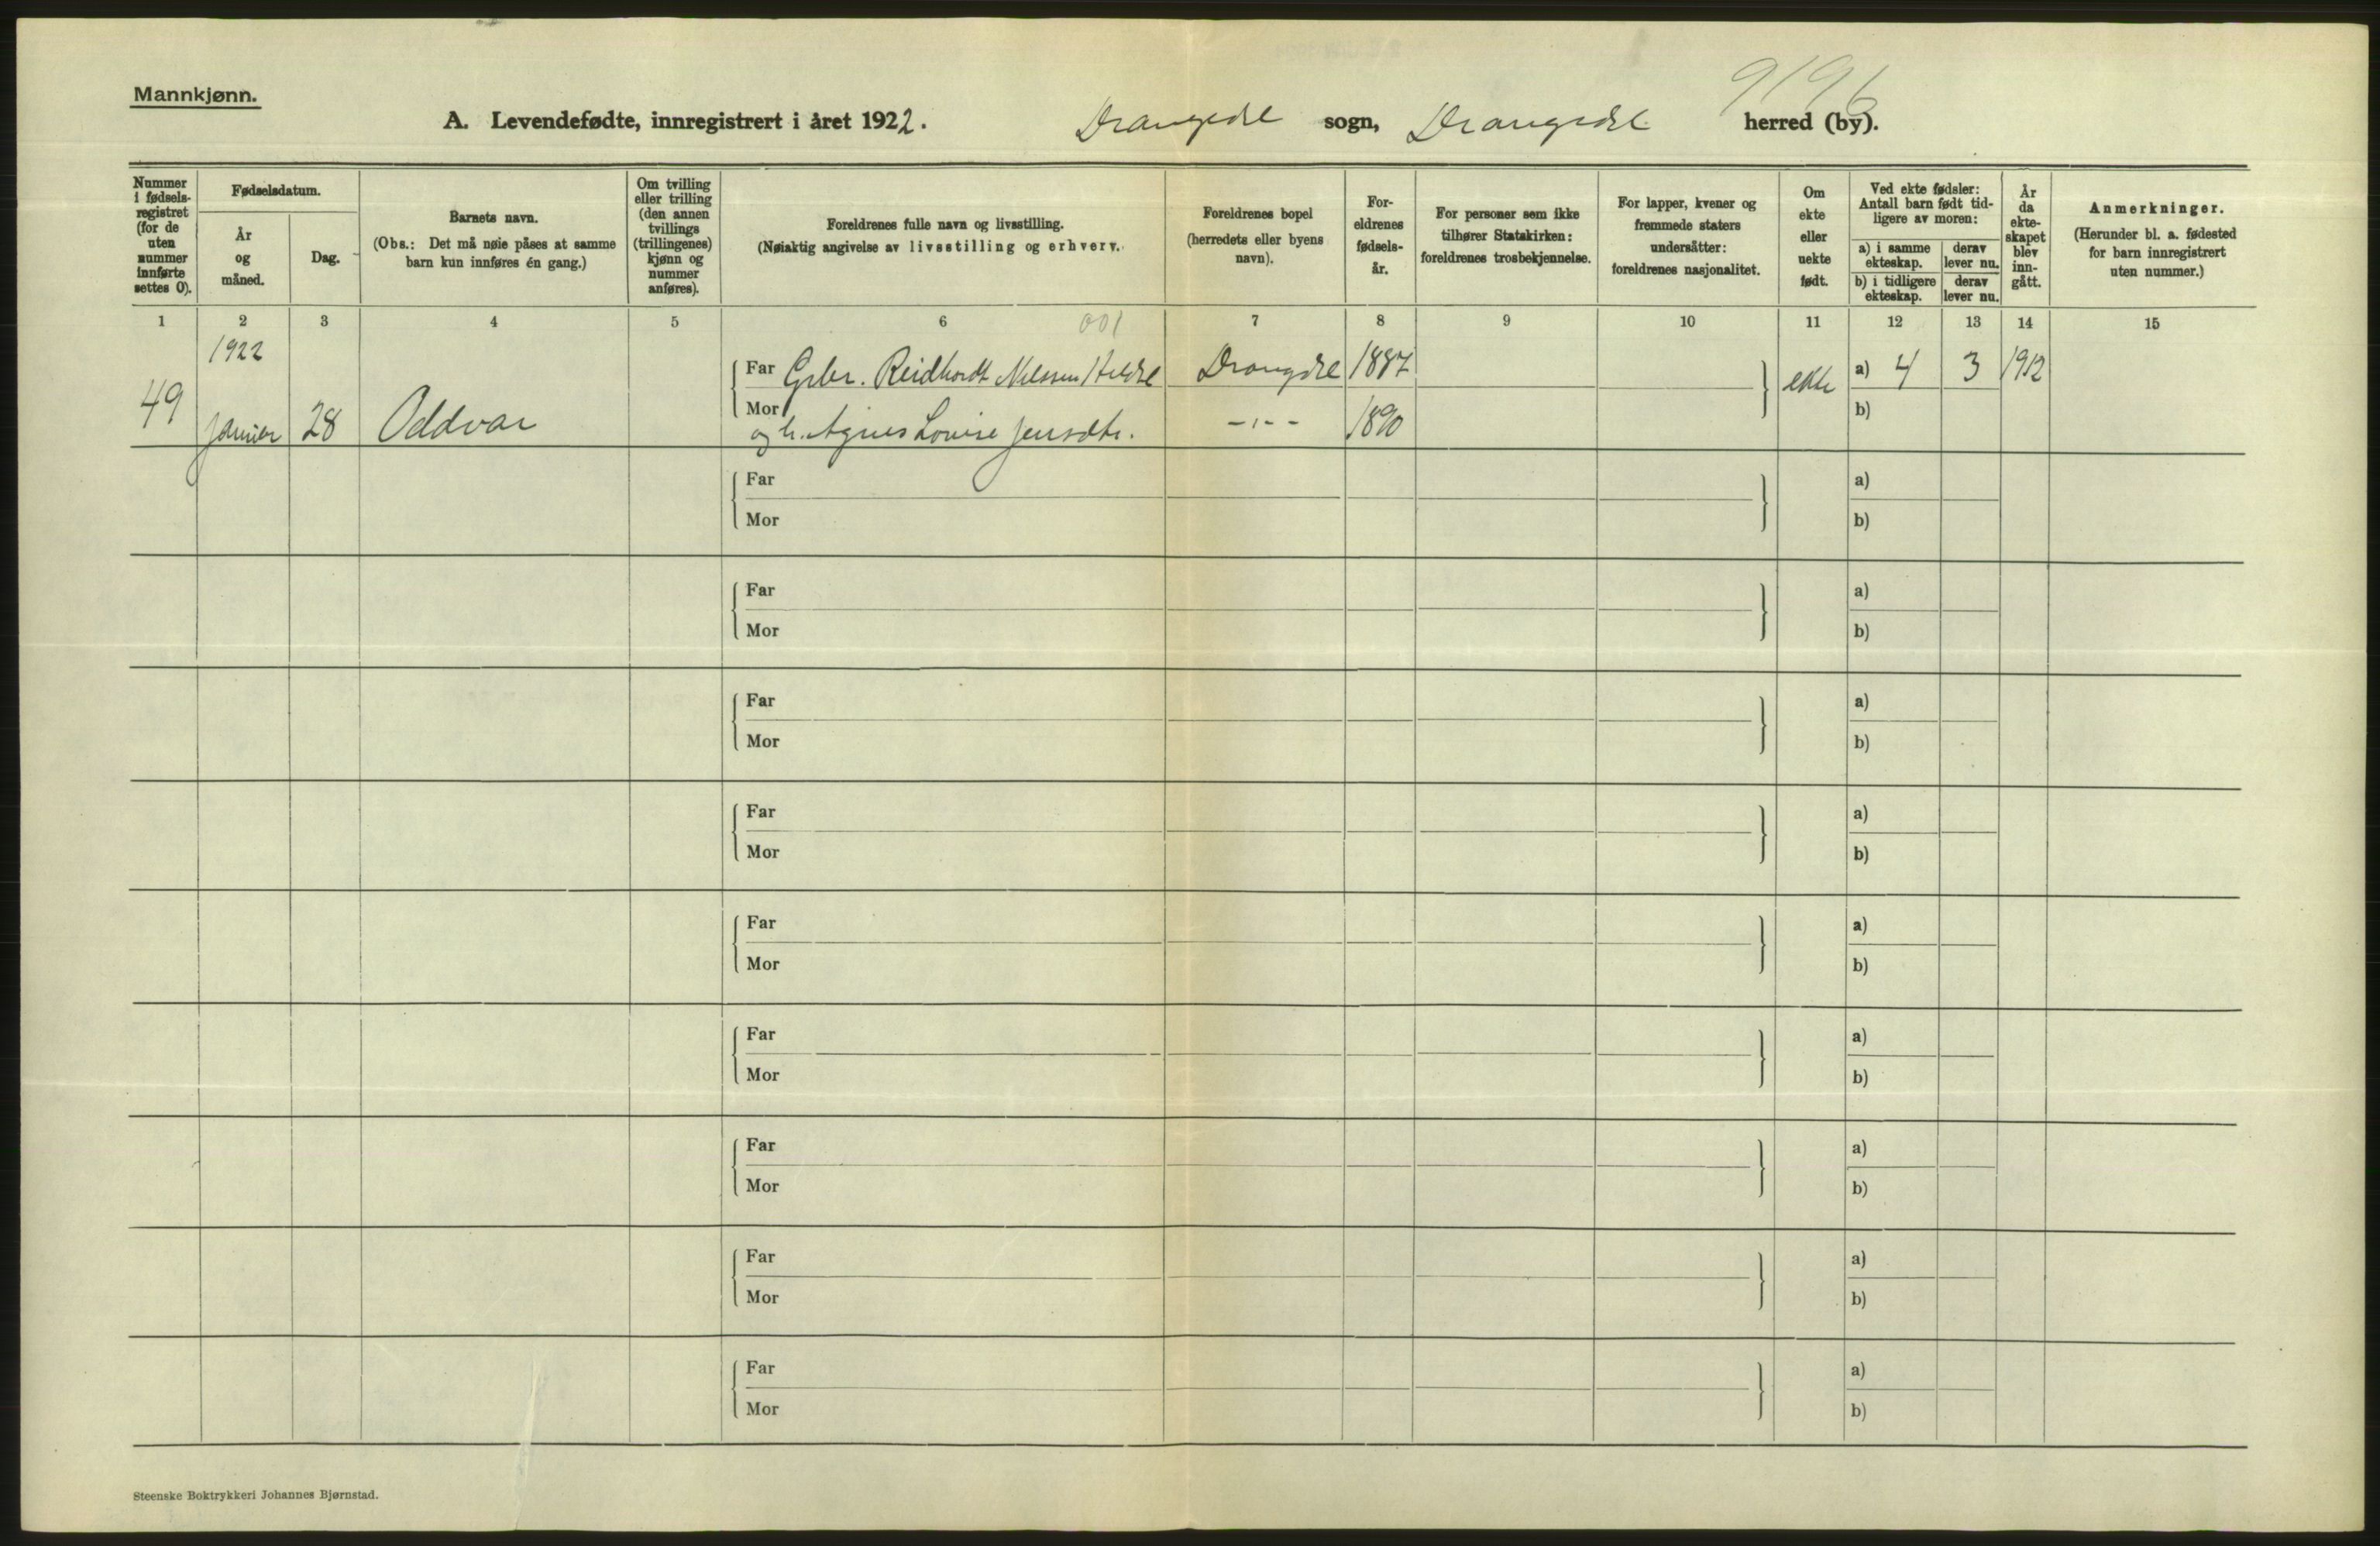 Mannkjønn.
9196
A. Levendefødte, innregistrert i året 1922. Drangedal sogn, Drangedal herred (by).
Nummer i fødselsregistret (for de uten nummer innførte settes 0).
Fødselsdatum.
År og måned.
Dag.
Barnets navn.
(Obs.: Det må nøie påses at samme barn kun innføres én gang.)
Om tvilling eller trilling (den annen tvillings (trillingenes) kjønn og nummer anføres).
Foreldrenes fulle navn og livsstilling.
(Nøiaktig angivelse av livsstilling og erhverv.
Foreldrenes bopel (herredets eller byens navn).
Foreldrenes fødselsår.
For personer som ikke tilhører Statskirken: foreldrenes trosbekjennelse.
For lapper, kvener og fremmede staters undersåtter: foreldrenes nasjonalitet.
Om ekte eller uekte født.
Ved ekte fødsler: Antall barn født tidligere av moren:
a) i samme ekteskap.
derav lever nu.
b) i tidligere ekteskap.
derav lever nu.
År da ekteskapet blev inngått.
Anmerkninger.
(Herunder bl. a. fødested for barn innregistrert uten nummer.)
1 2 3 4 5 6 001 7 8 9 10 11 12 13 14 15
1922
Far Grbr. Reidhardt Nilssen Heldal Drangdal 1887 ekte a) 4 3 1912
49 Januar 28 Oddvar
Mor og h. Agnes Lovise Jensdtr. -"- 1890 b)
Far a)
Mor b)
Far a)
Mor b)
Far a)
Mor b)
Far a)
Mor b)
Far a)
Mor b)
Far a)
Mor b)
Far a)
Mor b)
Far a)
Mor b)
Far a)
Mor b)
Steenske Boktrykkeri Johannes Bjørnstad.